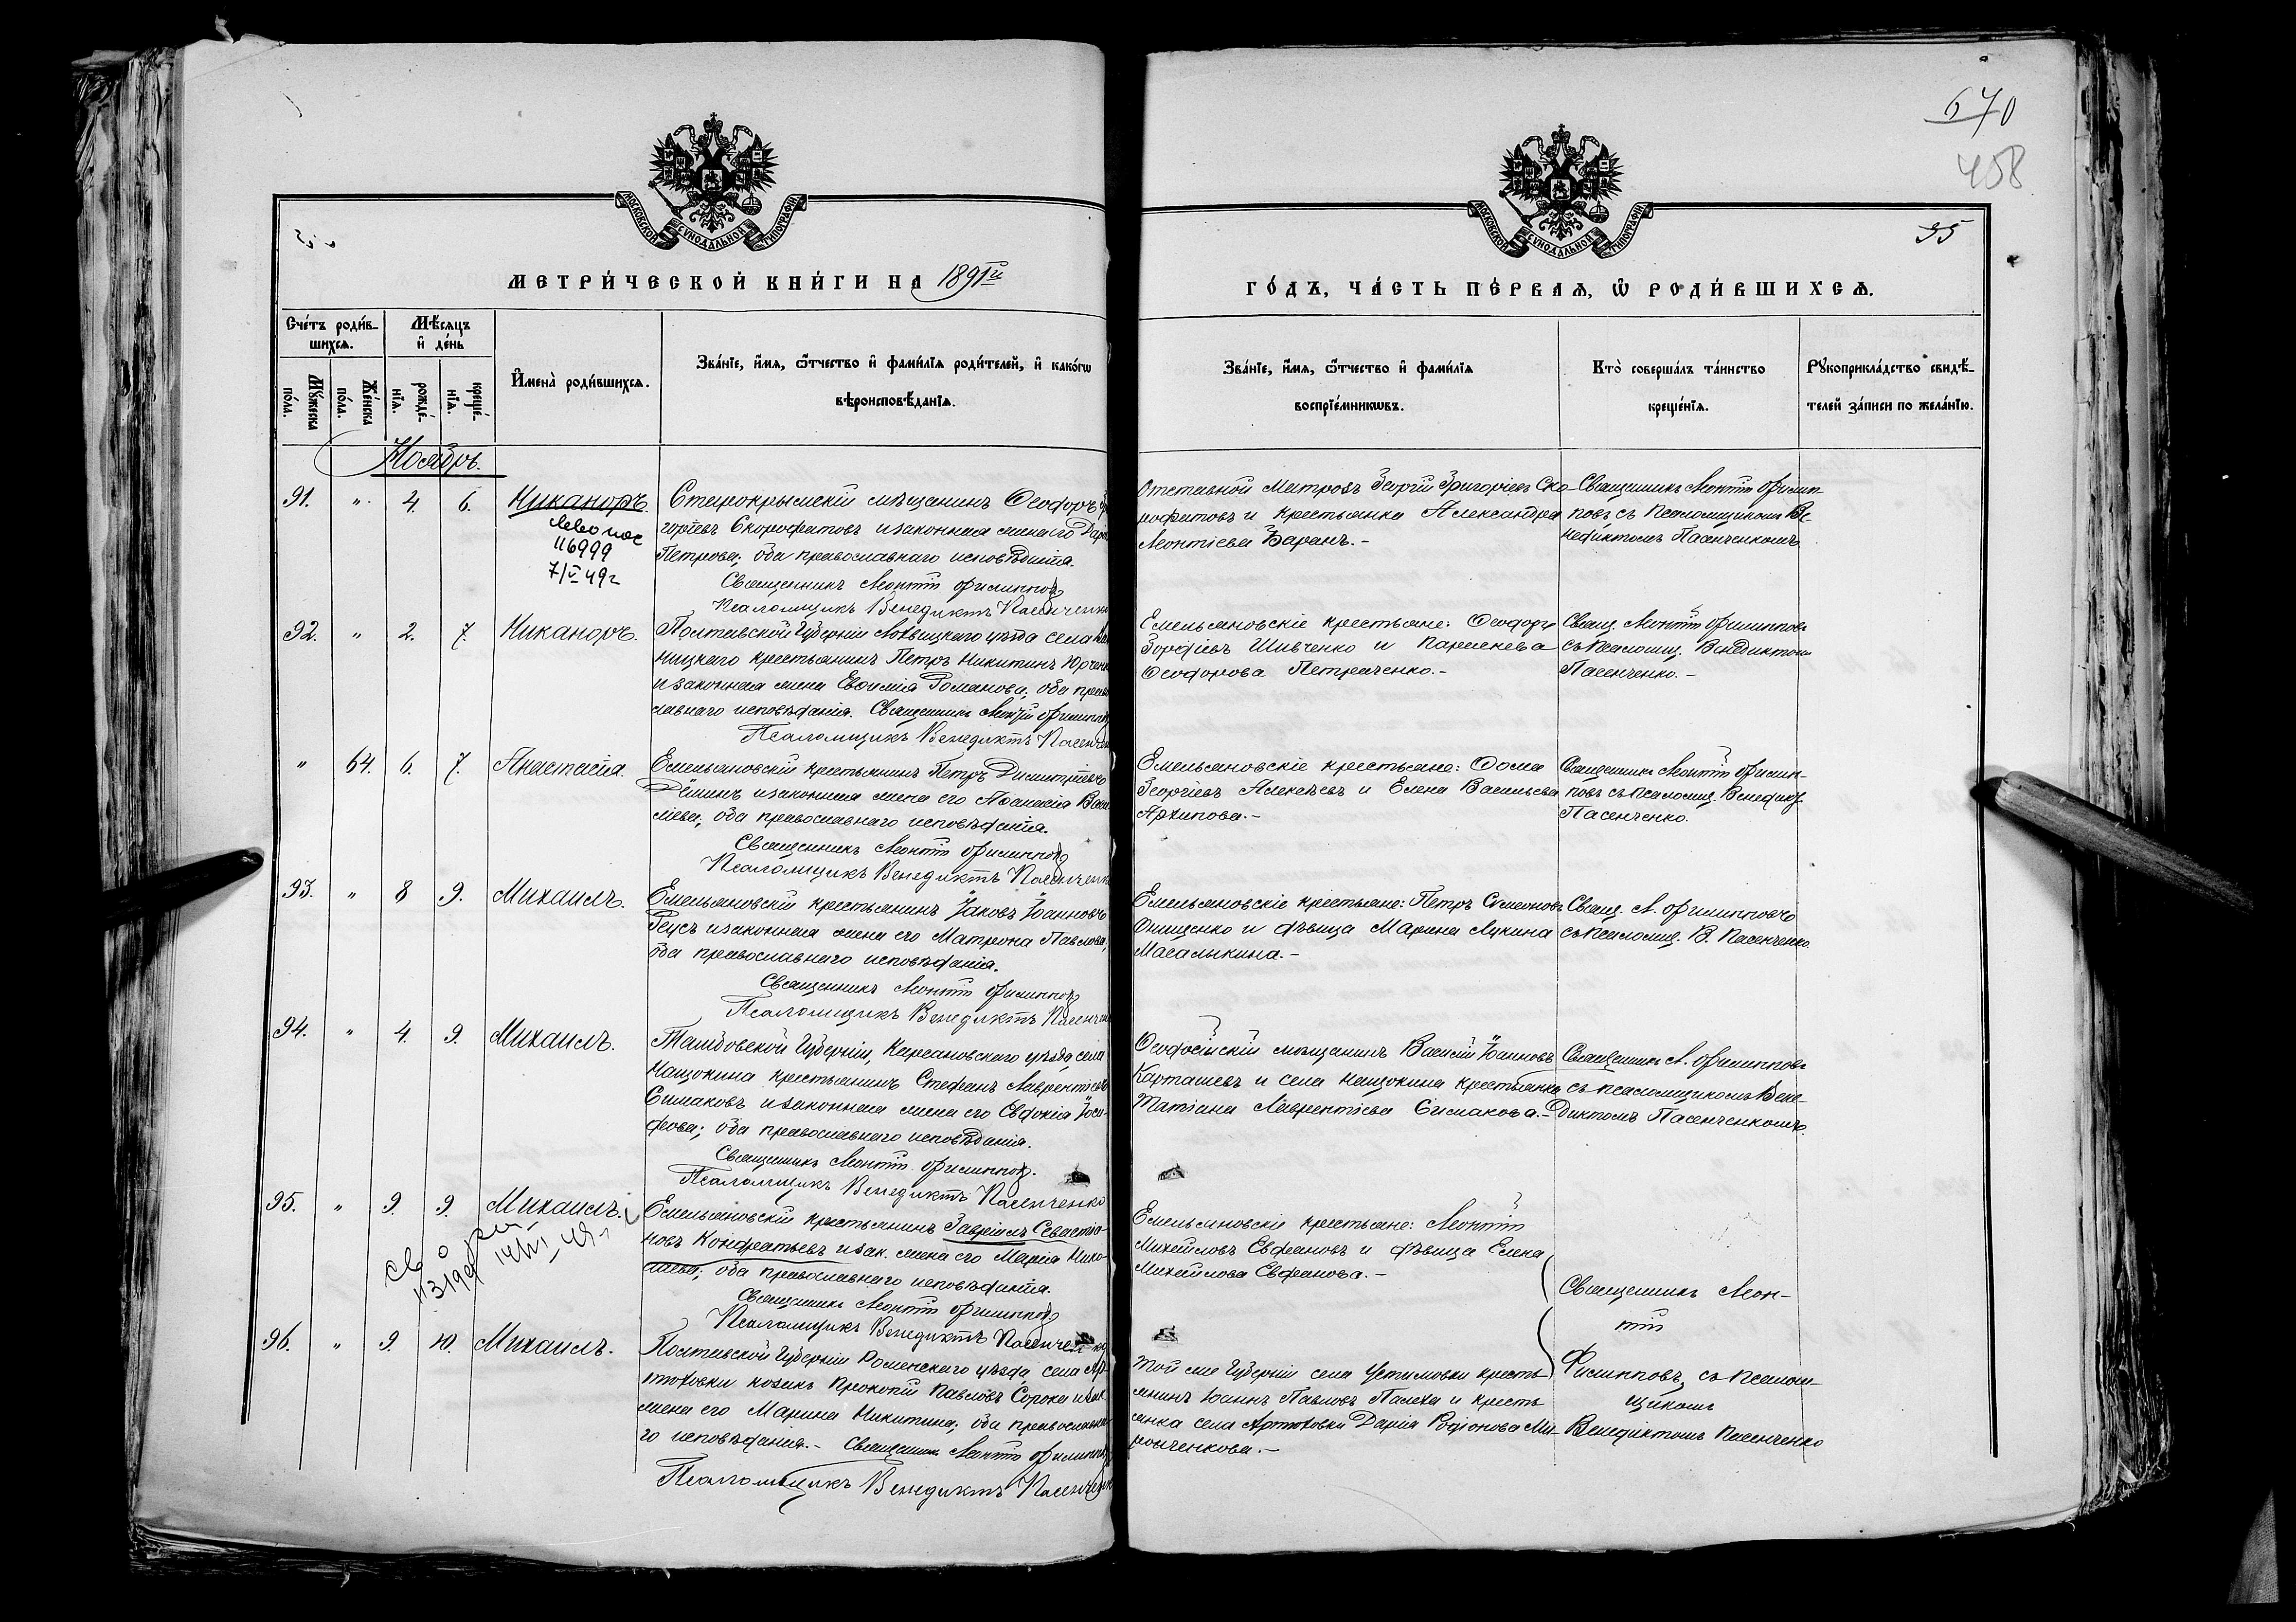 670
458
35
МОСКОВСКОЙ СУНОДАЛЬНОЙ ТИПОГРАФІИ
МОСКОВСКОЙ СУНОДАЛЬНОЙ ТИПОГРАФІИ
МЕТРИ́ЧЕСКОЙ КНИ́ГИ НА 1891й
ГО́ДЪ, ЧА́СТЬ ПЕ́РВАѦ, Ѡ҆ РОДИ́ВШИХСѦ.
Сче́тъ роди́в-
шихсѧ.
Мѣ́сѧцъ
и҆ де́нь
Мꙋ́жеска
по́ла.
Же́нска
по́ла.
рожде́-
нїѧ.
креще́-
нїѧ.
И҆мена̀ роди́вшихсѧ.
Зва́нїе, и҆́мѧ, ѻ҆́тчество и҆ фами́лїѧ роди́телей, и҆ како́гѡ
вѣроисповѣ́данїѧ.
Зва́нїе, и҆́мѧ, ѻ҆́тчество и҆ фами́лїѧ
воспрїе́мникѡвъ.
Кто̀ соверша́лъ та́инство
креще́нїѧ.
Рꙋкоприкла́дство свидѣ́-
телей за́писи по жела́нїю.
Ноябрь.
91. " 4. 6. Никаноръ.
116999
7/V 49г
Старокрымскій мѣщанинъ Ѳеодоръ
горіевъ Скорофатовъ и законная жена его Дарія
Петрова; оба православнаго исповѣданія.
Священникъ Леонтій Филипповъ
Псаломщикъ Венедиктъ Пасенченко
Отставной Матросъ Георгій Григоріевъ Ско-
рофатовъ и крестьянка Александра
Леонтіева Баранъ.-
Священникъ Леонтій Филип-
повъ съ Псаломщикомъ Ве-
недиктомъ Пасенченкомъ.
92. " 2. 7. Никаноръ.
Полтавской Губерніи Лохвицкаго уѣзда села
ницкаго крестьянинъ Петръ Никитинъ Юрченко
и законная жена Евѳимія Романова; оба право-
славнаго исповѣданія. Священникъ Леонтій Филипповъ
Псаломщикъ Венедиктъ Пасенченко
Емельяновскіе крестьяне: Ѳеодоръ
Шивченко и Параскева
Ѳеодорова Петраченко.-
Свящ. Леонтій Филипповъ
съ Псаломщ. Венедиктомъ
Пасенченко.-
" 64. 6. 7. Анастасія.
Емельяновскій крестьянинъ Петръ Димитріевъ
Деминъ и законная жена его Аѳанасія Васи-
лієва; оба православнаго исповѣданія.
Священникъ Леонтій Филипповъ
Псаломщикъ Венедиктъ Пасенченко
Емельяновскіе крестьяне: Ѳома
Георгіевъ Алексѣевъ и Елена Васильева
Архипова.-
Священникъ Леонтій Филип-
повъ съ Псаломщ. Венедикт.
Пасенченко.
93. " 8 9. Михаилъ.
Емельяновскій крестьянинъ Іаковъ Іоанновъ
Реусъ и законная жена его Матрона Павлова;
оба православнаго исповѣданія.
Священникъ Леонтій Филипповъ
Псаломщикъ Венедиктъ Пасенченко
Емельяновскіе крестьяне: Петръ Симеоновъ
Онищенко и дѣвица Марина Лукина
Масалыкина.-
Свящ. Л. Филипповъ
съ Псаломщ. В. Пасенченко.
94. " 4. 9. Михаилъ.
Тамбовской Губерніи, Кирсановскаго уѣзда, села
Нащокина крестьянинъ Стефанъ Лаврентіевъ
Симаковъ и законная жена его Евдокія Іоси-
фова; оба православнаго исповѣданія.
Священникъ Леонтій Филипповъ.
Псаломщикъ Венедиктъ Пасенченко
Ѳеодосійскій мѣщанинъ Василій Іоанновъ
Карташевъ и села Нащокина крестьянка
Татіана Лаврентіева Симакова.-
Священникъ Л. Филипповъ
съ псаломщикомъ Вене-
диктомъ Пасенченкомъ.
95. " 9. 9. Михаилъ.
Емельяновскій крестьянинъ Гавріилъ Севастіа-
новъ Кондратьевъ и зак. жена его Марія Нико-
лаева; оба православнаго исповѣданія.
Священникъ Леонтій Филипповъ
Псаломщикъ Венедиктъ Пасенченко
Емельяновскіе крестьяне: Леонтій
Михайловъ Евфановъ и дѣвица Елена
Михайлова Евфанова.-
Священникъ Леон-
тій
Филипповъ, съ псалом-
щикомъ
Венедиктомъ Пасенченко
96. " 9. 10. Михаилъ.
Полтавской Губерніи Роменскаго уѣзда, села Ар-
тюховки козакъ Прокопій Павловъ Сорока и зак.
жена его Марина Никитина; оба православна-
го исповѣданія.- Священникъ Леонтій Филипповъ
Псаломщикъ Венедиктъ Пасенченко
Той же Губерніи села Устимовки кресть-
янинъ Іоаннъ Павловъ Палеха и кресть-
янка села Артюховки Дарія Родіонова Ми-
ронченкова.-